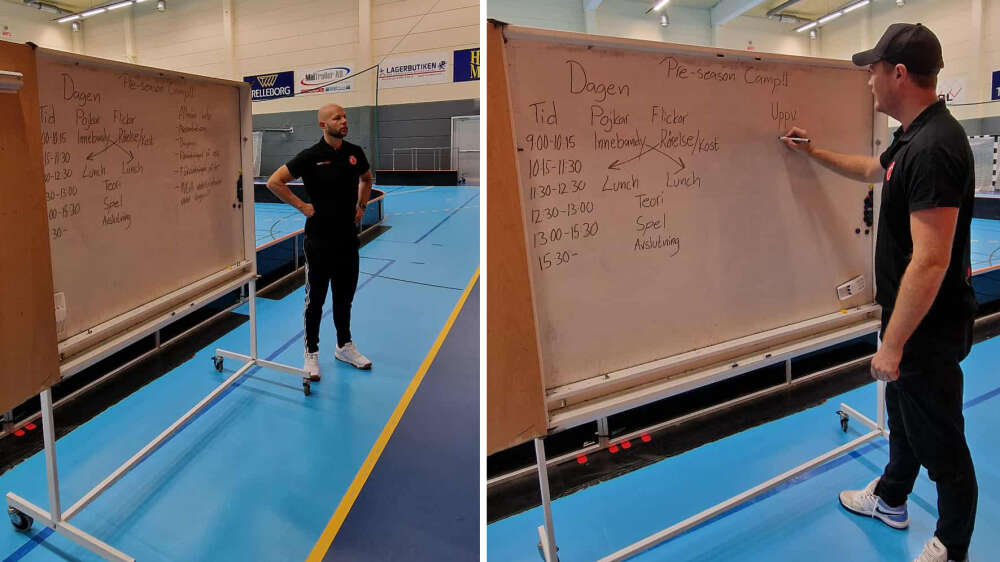 TRELLEBORG
MalTrailer AB
LAGERBUTIKEN
Dagen
Pre-season Camp!!
Pojkar Flickor
00-10.15 Innebandy Rörelse/Kost
15-11.30
-12.30 Lunch Lunch
30-13.00 Teori
00-15.30 Spel
30- Avslutning
Dagen
Pre-season Camp!!
Tid Pojkar Flickor
9.00-10.15 Innebandy Rörelse/Kost
10.15-11.30
11.30-12.30 Lunch Lunch
12.30-13.00 Teori
13.00-15.30 Spel
15.30- Avslutning
Uppv